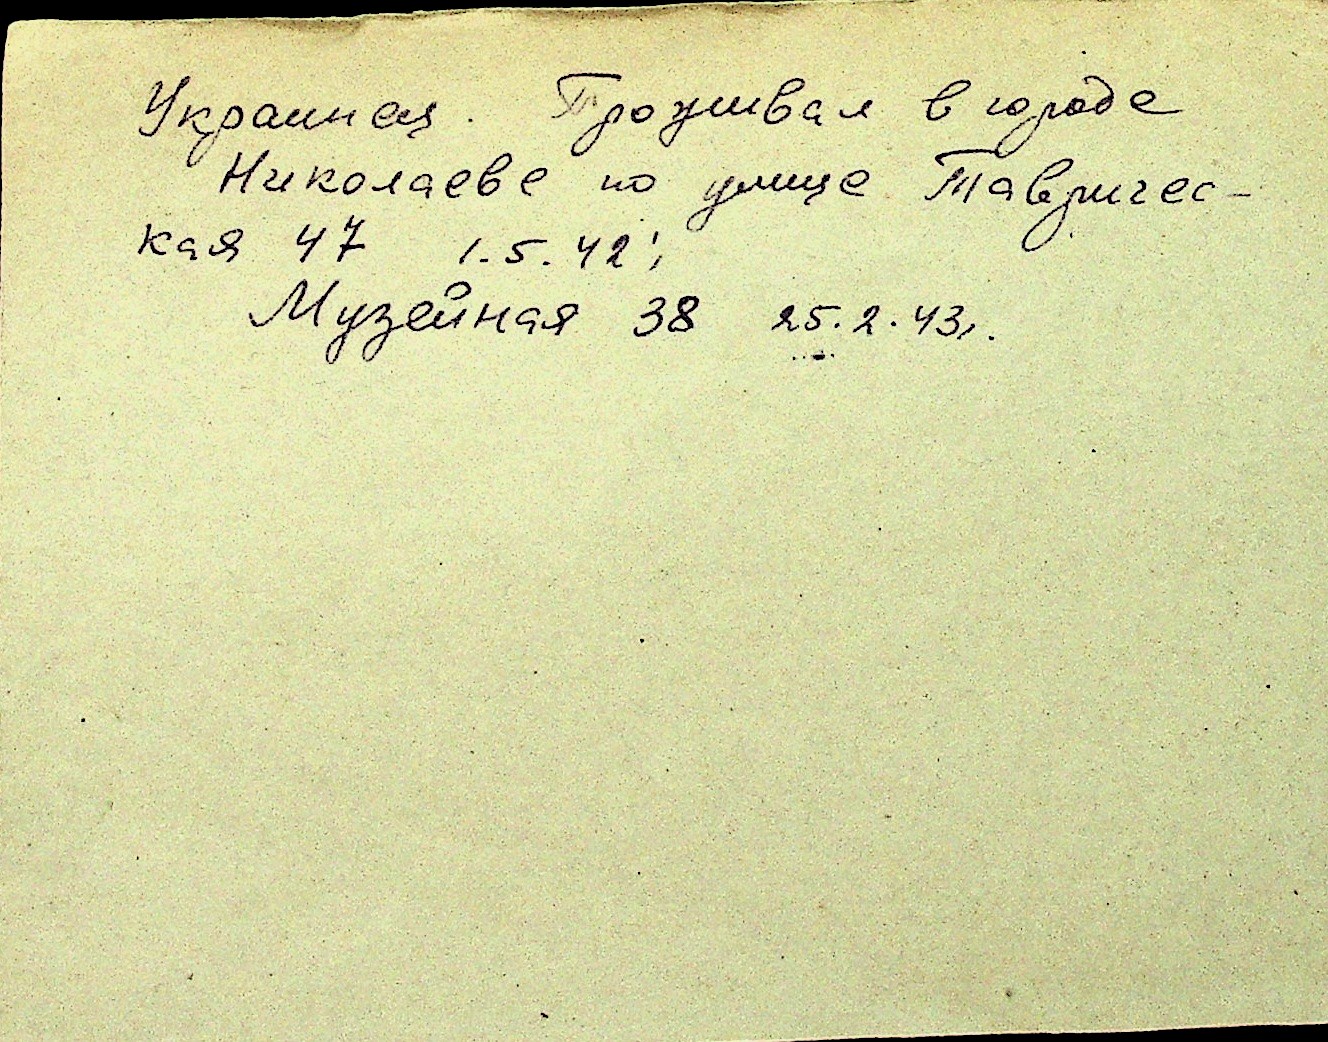 Украинец. Проживал в городе
Николаеве по улице Тавричес-
кая 47 1.5.42;
Музейная 38 25.2.43г.